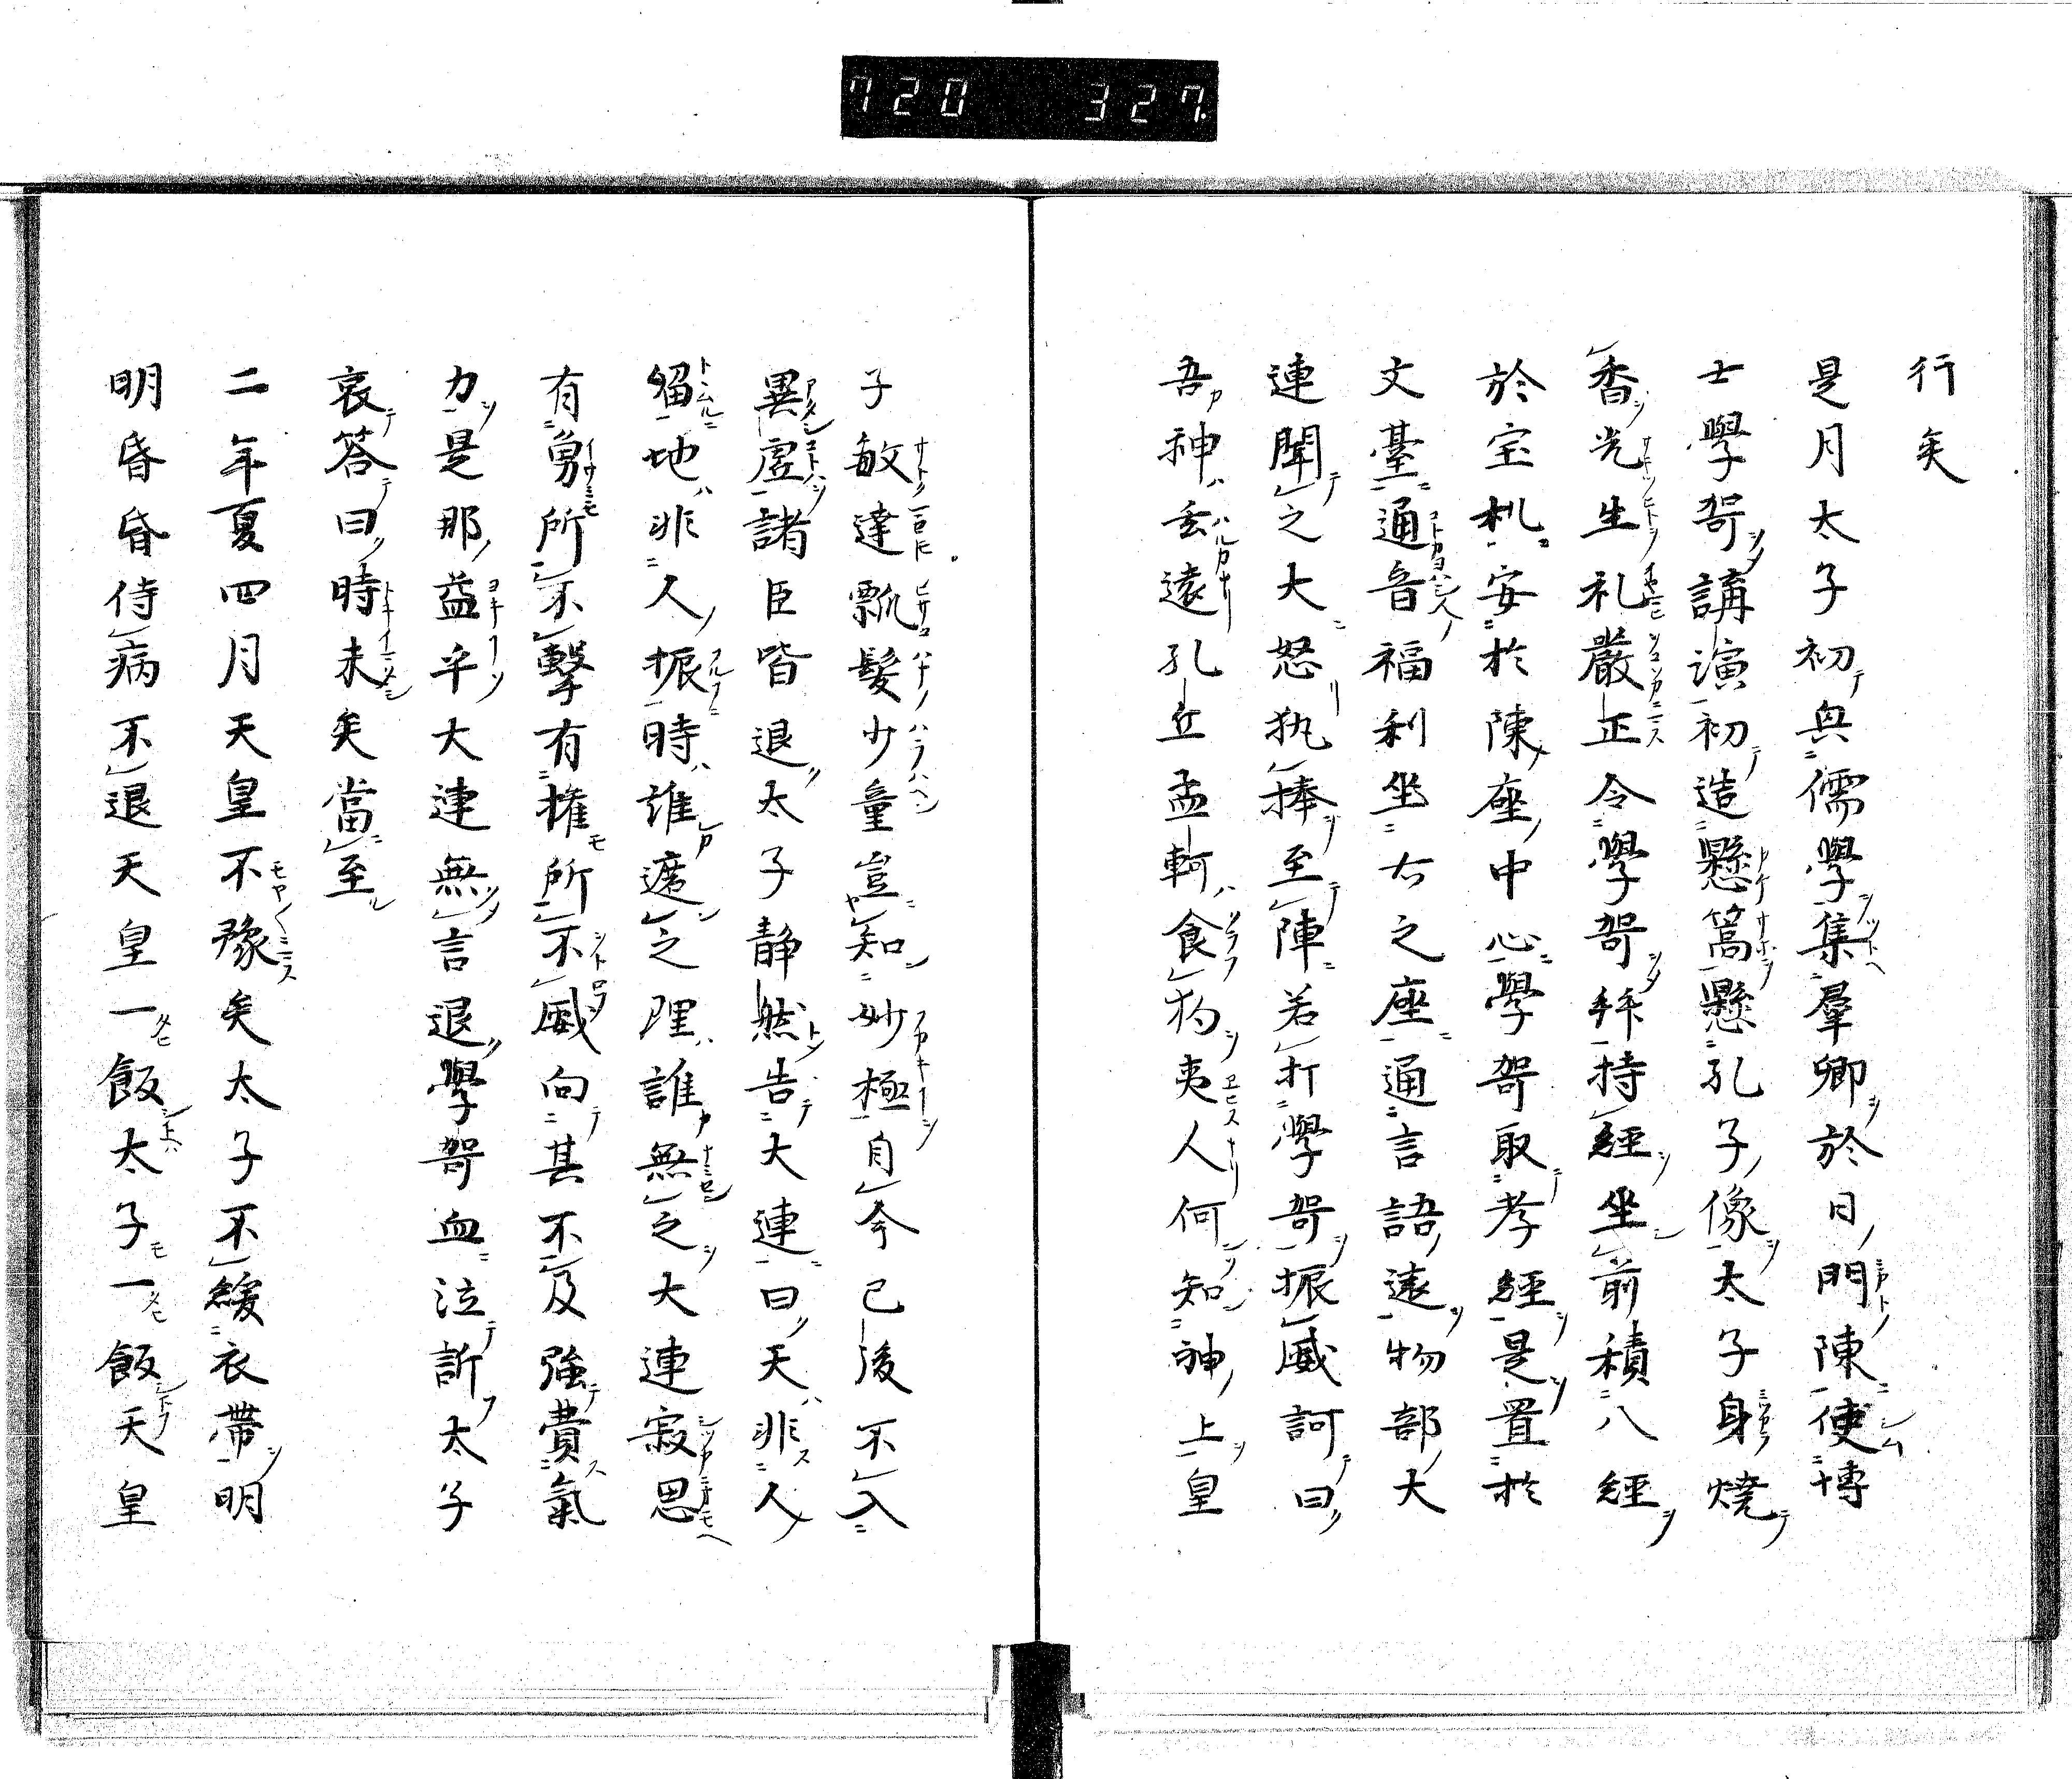 720 327.
行矣
是月太子初與儒學集羣卿於日門陳使博
士學哿講演初造懸篙懸孔子像太子身燒
香光生礼嚴正令學哿拜持經坐前積八經
於宝机安於陳座中心學哿取孝經是置於
文臺通音福利坐右之座通言語遠物部大
連聞之大怒執捧至陣若打學哿振威訶曰
吾神玄遠孔丘孟軻食狗夷人何知神上皇
子敏達瓢髮少童豈知妙極自今已後不入
異虛諸臣皆退太子静然告大連曰天非人
留地非人振時誰遮之理誰無之大連寂思
有勇所不擊有権所不威向其不及強費氣
力是那益乎大連無言退學哿血泣訴太子
哀答曰時未矣當至
二年夏四月天皇不豫矣太子不緩衣帶明
明昏昏侍病不退天皇一飯太子一飯天皇